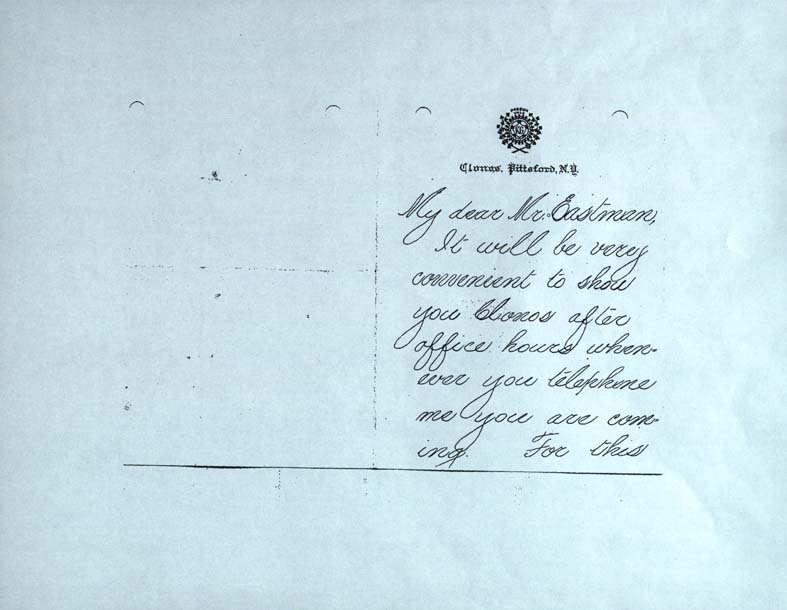 Clonos, Pittsford, N.Y.
My dear Mr. Eastman,
It will be very
convenient to show
you Clonos after
office hours when-
ever you telephone
me you are com-
ing. For this